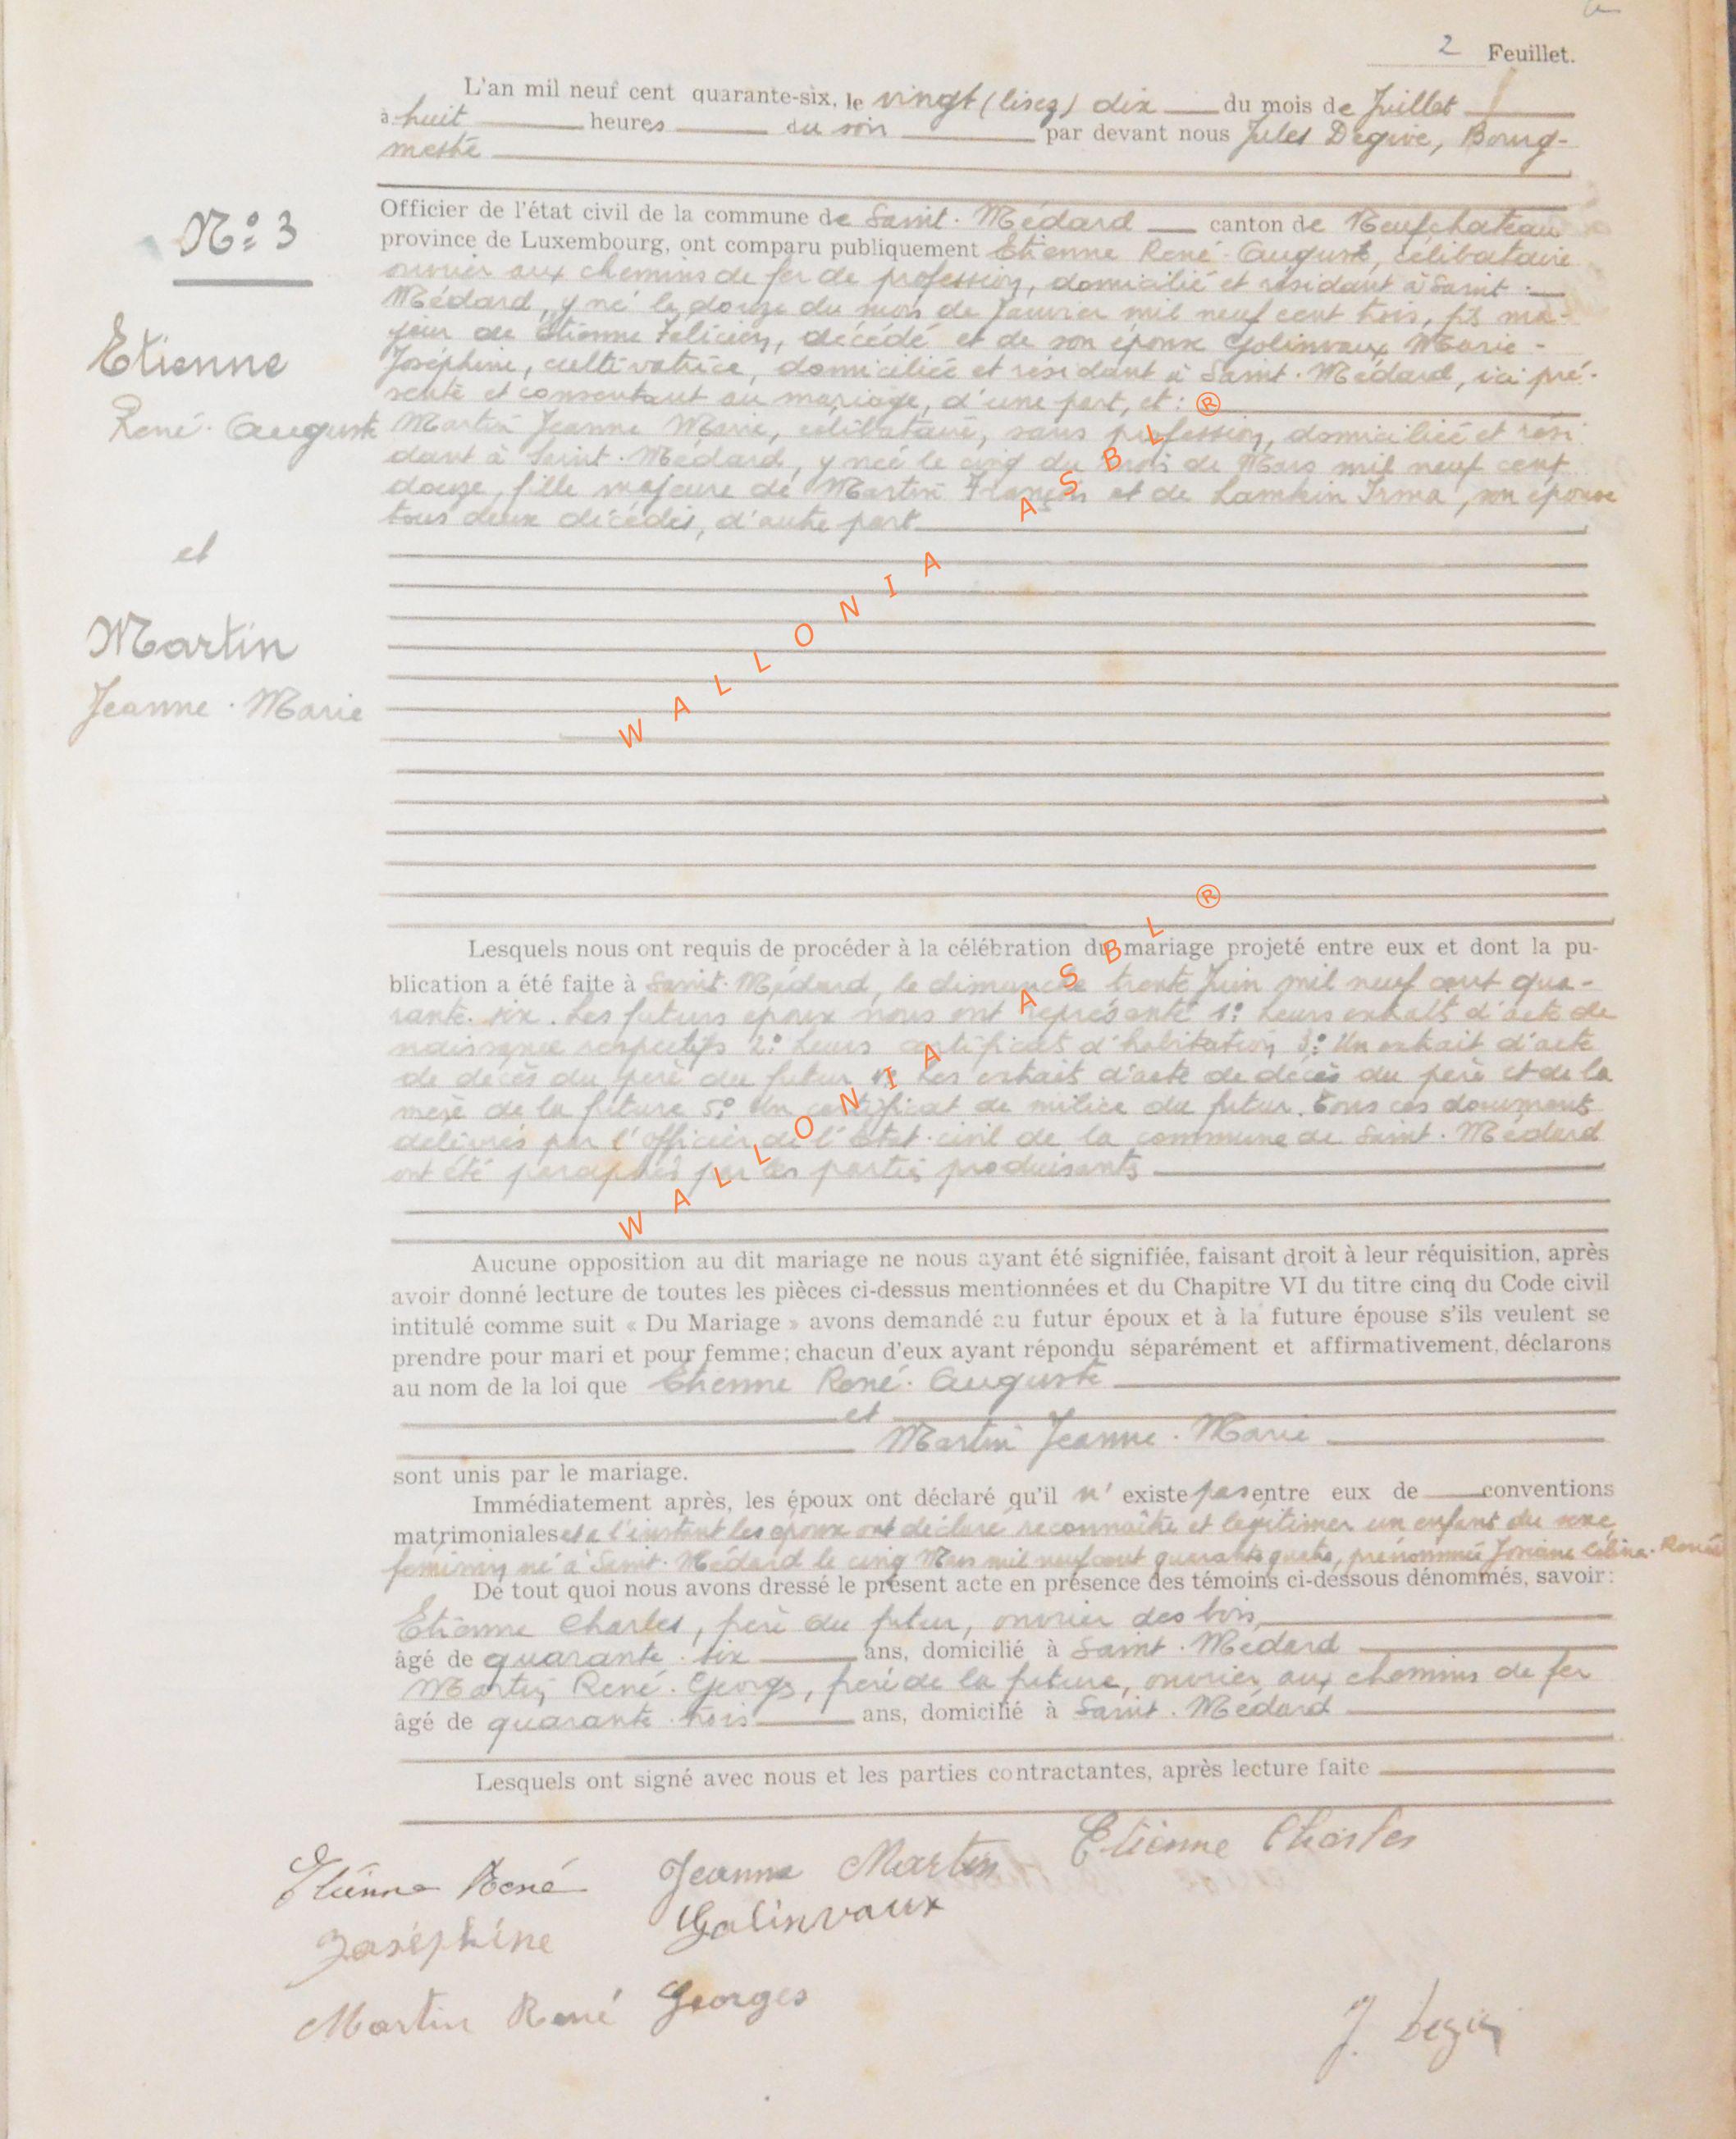 2 Feuillet.
L'an mil neuf cent quarante-six, le vingt (lisez) dix du mois de Juillet
à huit heures du soir par devant nous Jules Degive, Bourg-
mestre
Officier de l'état civil de la commune de Saint-Médard canton de Neufchateau
N° 3
province de Luxembourg, ont comparu publiquement Etienne René-Auguste, célibataire
ouvrier aux chemins de fer de profession, domicilié et résidant à Saint-
Médard, y né le douze du mois de Janvier mil neuf cent trois, fils ma-
jeur de Etienne Félicien, décédé et de son épouse Golinvaux Marie-
Etienne
Joséphine, cultivatrice, domiciliée et résidant à Saint-Médard, ici pré-
sente et consentant au mariage, d'une part, et : ®
René-Auguste
Martin Jeanne Marie, célibataire, sans profession, domiciliée et rési-
dant à Saint-Médard, y née le cinq du mois de Mars mil neuf cent
douze, fille majeure de Martin François et de Lamkin Irma, son épouse
tous deux décédés, d'autre part
et
Martin
Jeanne-Marie
WALLONIA ASBL
Lesquels nous ont requis de procéder à la célébration du mariage projeté entre eux et dont la pu-
blication a été faite à Saint-Médard, le dimanche trente Juin mil neuf cent qua-
rante-six. Les futurs époux nous ont représenté 1° Leurs extraits d'acte de
naissance respectifs 2° Leurs certificats d'habitation 3° Un extrait d'acte
de décès du père du futur Les extraits d'acte de décès du père et de la
mère de la future 5° Un certificat de milice du futur. Tous ces documents
délivrés par l'Officier de l'état-civil de la commune de Saint-Médard
ont été paraphés par les parties produisants
WALLONIA ASBL ®
Aucune opposition au dit mariage ne nous ayant été signifiée, faisant droit à leur réquisition, après
avoir donné lecture de toutes les pièces ci-dessus mentionnées et du Chapitre VI du titre cinq du Code civil
intitulé comme suit « Du Mariage » avons demandé au futur époux et à la future épouse s'ils veulent se
prendre pour mari et pour femme; chacun d'eux ayant répondu séparément et affirmativement, déclarons
au nom de la loi que Etienne René-Auguste
et
Martin Jeanne-Marie
sont unis par le mariage.
Immédiatement après, les époux ont déclaré qu'il n'existe pas entre eux de conventions
matrimoniales et à l'instant les époux ont déclaré reconnaître et légitimer un enfant du sexe
féminin né à Saint-Médard le cinq Mars mil neuf cent quarante quatre, prénommée Josiane Céline-Renée
De tout quoi nous avons dressé le présent acte en présence des témoins ci-dessous dénommés, savoir:
Etienne Charles, frère du futur, ouvrier des bois,
âgé de quarante-six ans, domicilié à Saint-Médard
Martin René-Georges, frère de la future, ouvrier aux chemins de fer
âgé de quarante-trois ans, domicilié à Saint-Médard
Lesquels ont signé avec nous et les parties contractantes, après lecture faite
Etienne René Jeanne Martin Etienne Charles
Joséphine Golinvaux
Martin René Georges
J. Degive